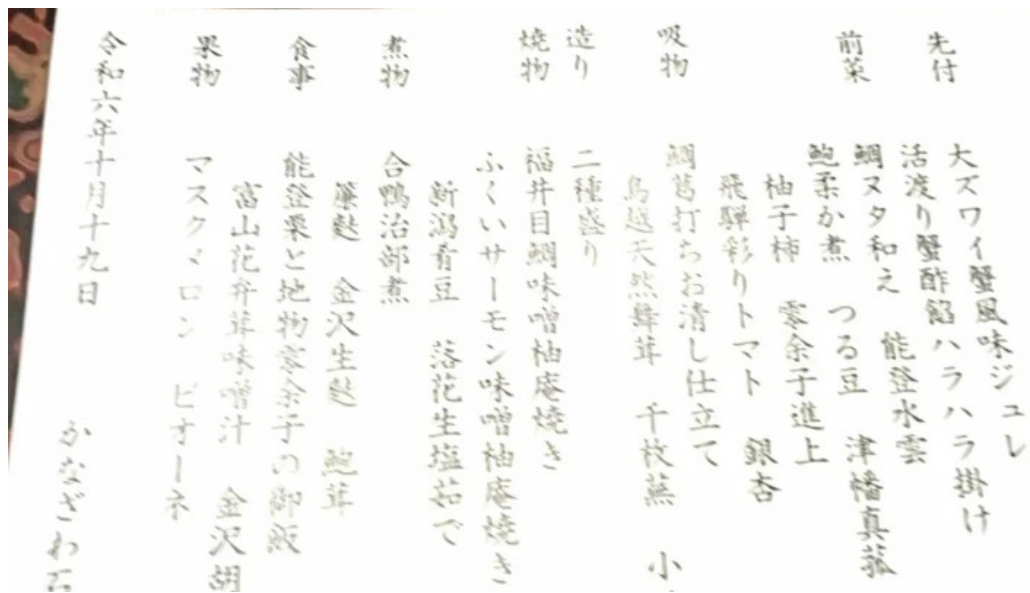 先付
大ズワイ蟹風味ジュレ
活渡り蟹酢餡ハラハラ掛け
前菜
鯛ヌタ和え 能登水雲
鮑柔か煮 つる豆 津幡真菰
柚子柿 零余子進上
飛騨彩りトマト 銀杏
吸物
鯛葛打ちお清し仕立て
鳥越天然舞茸 千枚蕪 小
造り
二種盛り
焼物
福井目鯛味噌柚庵焼き
ふくいサーモン味噌柚庵焼き
新潟肴豆 落花生塩茹で
煮物
合鴨治部煮
簾麩 金沢生麩 鮑茸
食事
能登栗と地物零余子の御飯
富山花弁茸味噌汁 金沢胡
果物
マスクメロン ピオーネ
令和六年十月十九日
かなざわ石